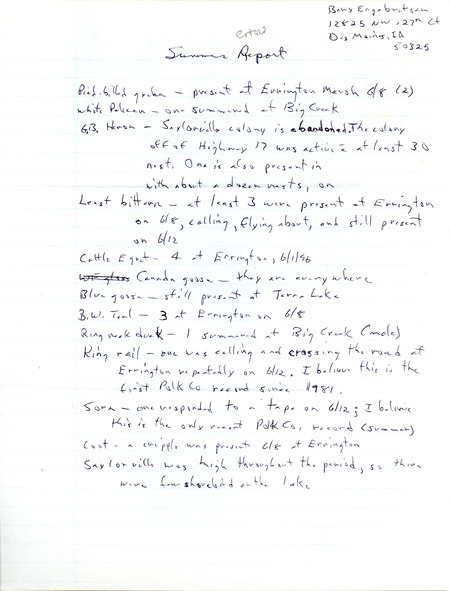 Bery Engebretsen
12825 NW 127th Ct
Des Moines, IA
50325
extra
Summer Report
Pied-billed grebe – present at Errington Marsh 6/8 (2)
White Pelican – one summered at Big Creek
G.B. Heron – Saylorville colony is abandoned. The colony
off of Highway 17 was active – at least 30
nest. One is also present in
with about a dozen nests, on
Least bittern – at least 3 were present at Errington
on 6/8, calling, flying about, and still present
on 6/12
Cattle Egret – 4 at Errington, 6/1/96
Canada goose – they are everywhere
Blue goose – still present at Terra Lake
B.W. Teal – 3 at Errington on 6/8
Ring neck duck – 1 summered at Big Creek (male)
King rail – one was calling and crossing the road at
Errington repeatedly on 6/12. I believe this is the
first Polk Co record since 1981.
Sora – one responded to a tape on 6/12; I believe
this is the only recent Polk Co. record (summer)
Coot – a cripple was present 6/8 at Errington
Saylorville was high throughout the period, so there
were few shorebird on the lake